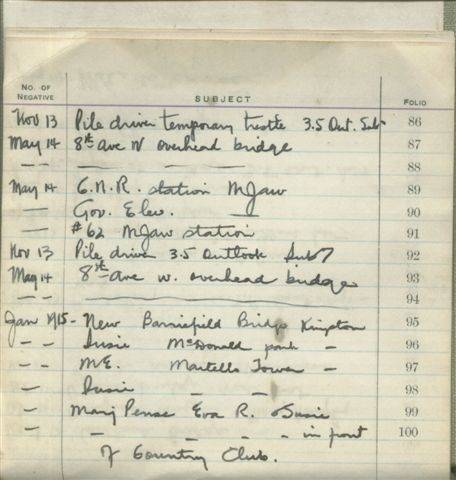 No. OF NEGATIVE SUBJECT FOLIO
Nov 13 Pile driver temporary trestle 3.5 Out. Sub 86
May 14 8th Ave W overhead bridge 87
— — — — — 88
May 14 C.N.R. station MJaw 89
— Gov. Elev. — 90
— #62 MJaw station 91
Nov 13 Pile driver 3.5 Outlook Sub 92
May 14 8th Ave W. overhead bridge 93
— — — 94
Jan 1915 - New Barriefield Bridge Kingston 95
— — Susie McDonald park — 96
— — M.E. Martello Tower — 97
— Susie — — 98
— Marj Pense Eva R. Susie 99
— — — — — in front 100
of Country Club.